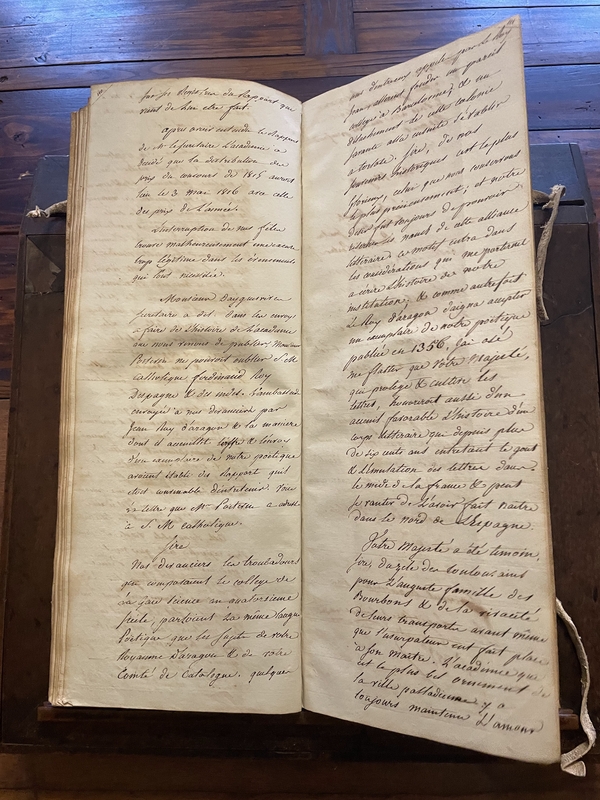 sur les
vient de leur etre fait.
après avoir entendu le Rapport
de M. le secretaire l'academie a
decidé que la distribution des
prix du concours de 1815 auroit
lieu le 3 mai 1816 avec celle
des prix de l'année.
L'interruption de nos fetes
trouve malheureusement une excuse
trop legitime dans les évenements
qui l'ont necessitée.
Monsieur
secretaire a dit. dans les envoys
a faire de l'histoire de l'academie
que nous venons de publier, Monsieur
Poitevin ne pouvoit oublier S. M.
catholique ferdinand Roy
D'espagne & des indes. l'ambassade
envoyée a nos devanciers par
Jean Roy d'aragon & la maniere
dont il accueillit l'offre & l'envoy
d'un exemplaire de notre poëtique
avoient établi des Rapports qu'il
étoit convenable d'entretenir. Voici
la lettre que M. Poitevin a adressé
a S. M. catholique.
Sire
Nos devanciers les troubadours
qui composaient le college de
la gaie science au quatorsieme
siecle, parloient la même langue
Poëtique que les sujets de votre
Royaume D'aragon & de votre
Comté de Catalogne. quelques
uns d'entreux appelés par le Roy
Jean allerent fonder un pareil
college a Barcelonne, & un
détachement de cette colonie
savante alla ensuite s'etablir
a tortose. Sire, de nos
souvenirs historiques c'est le plus
glorieux, celui que nous conservons
le plus précieusement; et notre
desir fait toujours de pouvoir
resserrer les nœuds de cette alliance
litteraire. ce motif entra dans
les considerations qui me porterent
a ecrire l'histoire de notre
institution; & comme autrefois
Le Roy d'aragon daigna accepter
un exemplaire de notre poëtique
publié en 1356, j'ai osé
me flatter que Votre Majesté,
qui protege & cultive les
lettres, honoreroit aussi d'un
accueil favorable l'histoire d'un
corps litteraire qui depuis plus
de six cents ans entretient le gout
& l'émulation des lettres dans
le midi de la france & peut
se vanter de l'avoir fait naitre
dans le nord de L'Espagne.
Votre Majesté a été temoin,
Sire, du zele des toulousains
pour l'auguste famille des
Bourbons & de la vivacité
de leurs transports avant même
que l'usurpateur eut fait place
a son Maitre. L'academie qui
est le plus bel ornement de
la ville palladienne y a
toujours maintenu L'amour